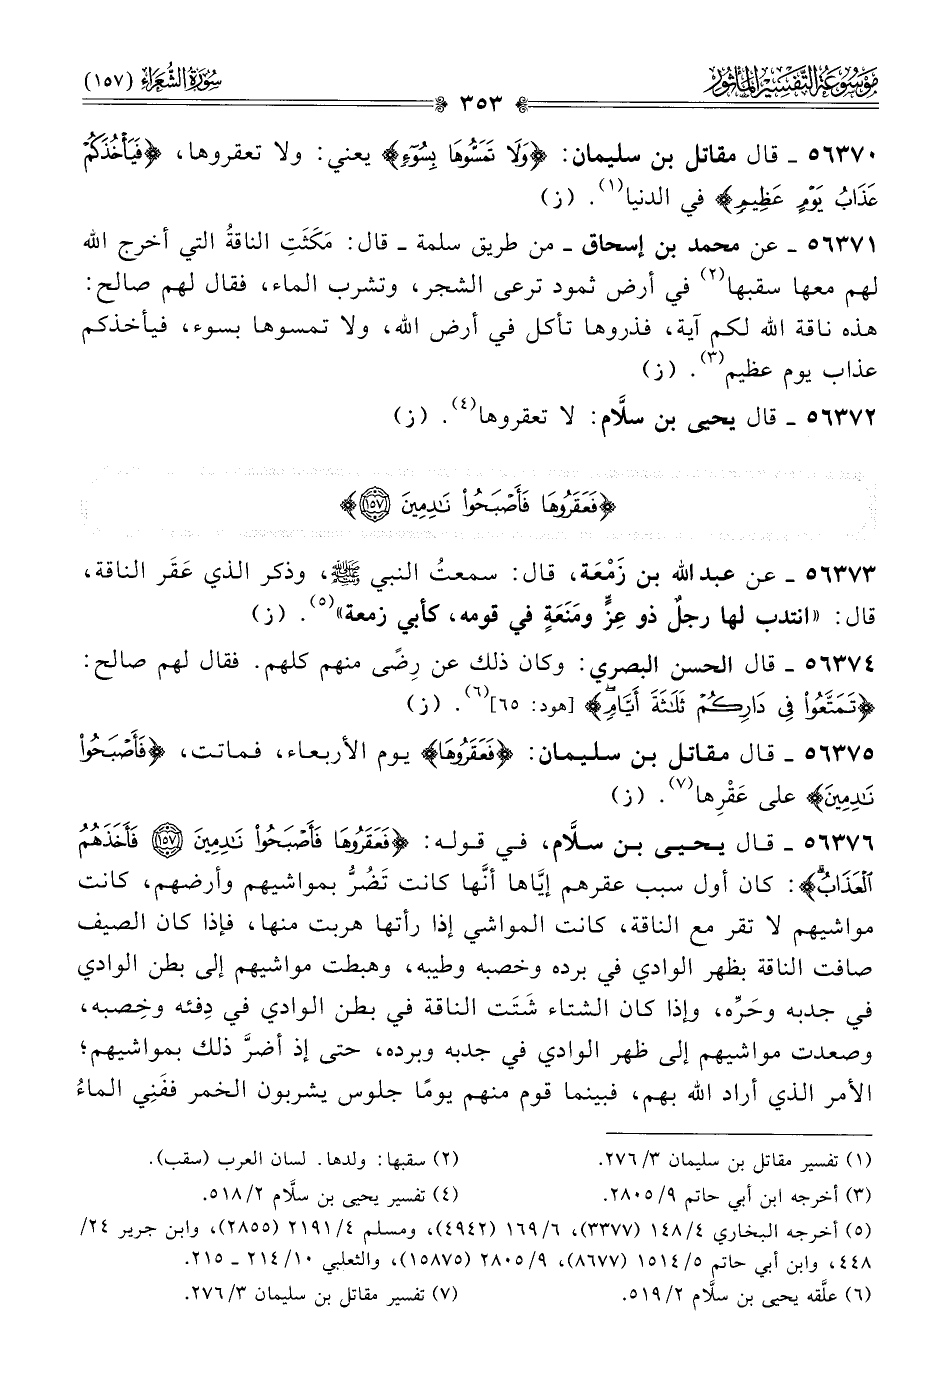 مَوْسُوعَة التَّفْسِير المَأْثُور
سُورَةُ الشُّعَرَاءِ (١٥٧)
٣٥٣
٥٦٣٧٠ ـ قال مقاتل بن سليمان: ﴿وَلَا تَمَسُّوهَا بِسُوٓءٍ﴾ يعني: ولا تعقروها، ﴿فَيَأْخُذَكُمْ
عَذَابُ يَوْمٍ عَظِيمٍ﴾ في الدنيا(١). (ز)
٥٦٣٧١ ـ عن محمد بن إسحاق ـ من طريق سلمة ـ قال: مَكَثَتِ الناقةُ التي أخرج الله
لهم معها سقبها(٢) في أرض ثمود ترعى الشجر، وتشرب الماء، فقال لهم صالح:
هذه ناقة الله لكم آية، فذروها تأكل في أرض الله، ولا تمسوها بسوء، فيأخذكم
عذاب يوم عظيم(٣). (ز)
٥٦٣٧٢ ـ قال يحيى بن سلَّام: لا تعقروها(٤). (ز)
﴿فَعَقَرُوهَا فَأَصْبَحُوا۟ نَـٰدِمِينَ ١٥٧﴾
٥٦٣٧٣ ـ عن عبد الله بن زَمْعَة، قال: سمعتُ النبي ﷺ، وذكر الذي عَقَر الناقة،
قال: «انتدب لها رجلٌ ذو عِزٍّ ومَنَعَةٍ في قومه، كأبي زمعة»(٥). (ز)
٥٦٣٧٤ ـ قال الحسن البصري: وكان ذلك عن رِضًى منهم كلهم. فقال لهم صالح:
﴿تَمَتَّعُوا۟ فِى دَارِكُمْ ثَلَـٰثَةَ أَيَّامٍۖ﴾ [هود: ٦٥](٦). (ز)
٥٦٣٧٥ ـ قال مقاتل بن سليمان: ﴿فَعَقَرُوهَا﴾ يوم الأربعاء، فماتت، ﴿فَأَصْبَحُوا۟
نَـٰدِمِينَ﴾ على عَقْرِها(٧). (ز)
٥٦٣٧٦ ـ قال يحيى بن سلَّام، في قوله: ﴿فَعَقَرُوهَا فَأَصْبَحُوا۟ نَـٰدِمِينَ ١٥٧ فَأَخَذَهُمُ
ٱلْعَذَابُۗ﴾: كان أول سبب عقرهم إيَّاها أنَّها كانت تَضُرُّ بمواشيهم وأرضهم، كانت
مواشيهم لا تقر مع الناقة، كانت المواشي إذا رأتها هربت منها، فإذا كان الصيف
صافت الناقة بظهر الوادي في برده وخصبه وطيبه، وهبطت مواشيهم إلى بطن الوادي
في جدبه وحَرِّه، وإذا كان الشتاء شَتَت الناقة في بطن الوادي في دِفئه وخِصبه،
وصعدت مواشيهم إلى ظهر الوادي في جدبه وبرده، حتى إذ أضرَّ ذلك بمواشيهم؛
الأمر الذي أراد الله بهم، فبينما قوم منهم يومًا جلوس يشربون الخمر ففَنِي الماءُ
(١) تفسير مقاتل بن سليمان ٣/ ٢٧٦.
(٢) سقبها: ولدها. لسان العرب (سقب).
(٣) أخرجه ابن أبي حاتم ٩/ ٢٨٠٥.
(٤) تفسير يحيى بن سلَّام ٢/ ٥١٨.
(٥) أخرجه البخاري ٤/ ١٤٨ (٣٣٧٧)، ٦/ ١٦٩ (٤٩٤٢)، ومسلم ٤/ ٢١٩١ (٢٨٥٥)، وابن جرير ٢٤/
٤٤٨، وابن أبي حاتم ٥/ ١٥١٤ (٨٦٧٧)، ٩/ ٢٨٠٥ (١٥٨٧٥)، والثعلبي ١٠/ ٢١٤ ـ ٢١٥.
(٦) علَّقه يحيى بن سلَّام ٢/ ٥١٩.
(٧) تفسير مقاتل بن سليمان ٣/ ٢٧٦.